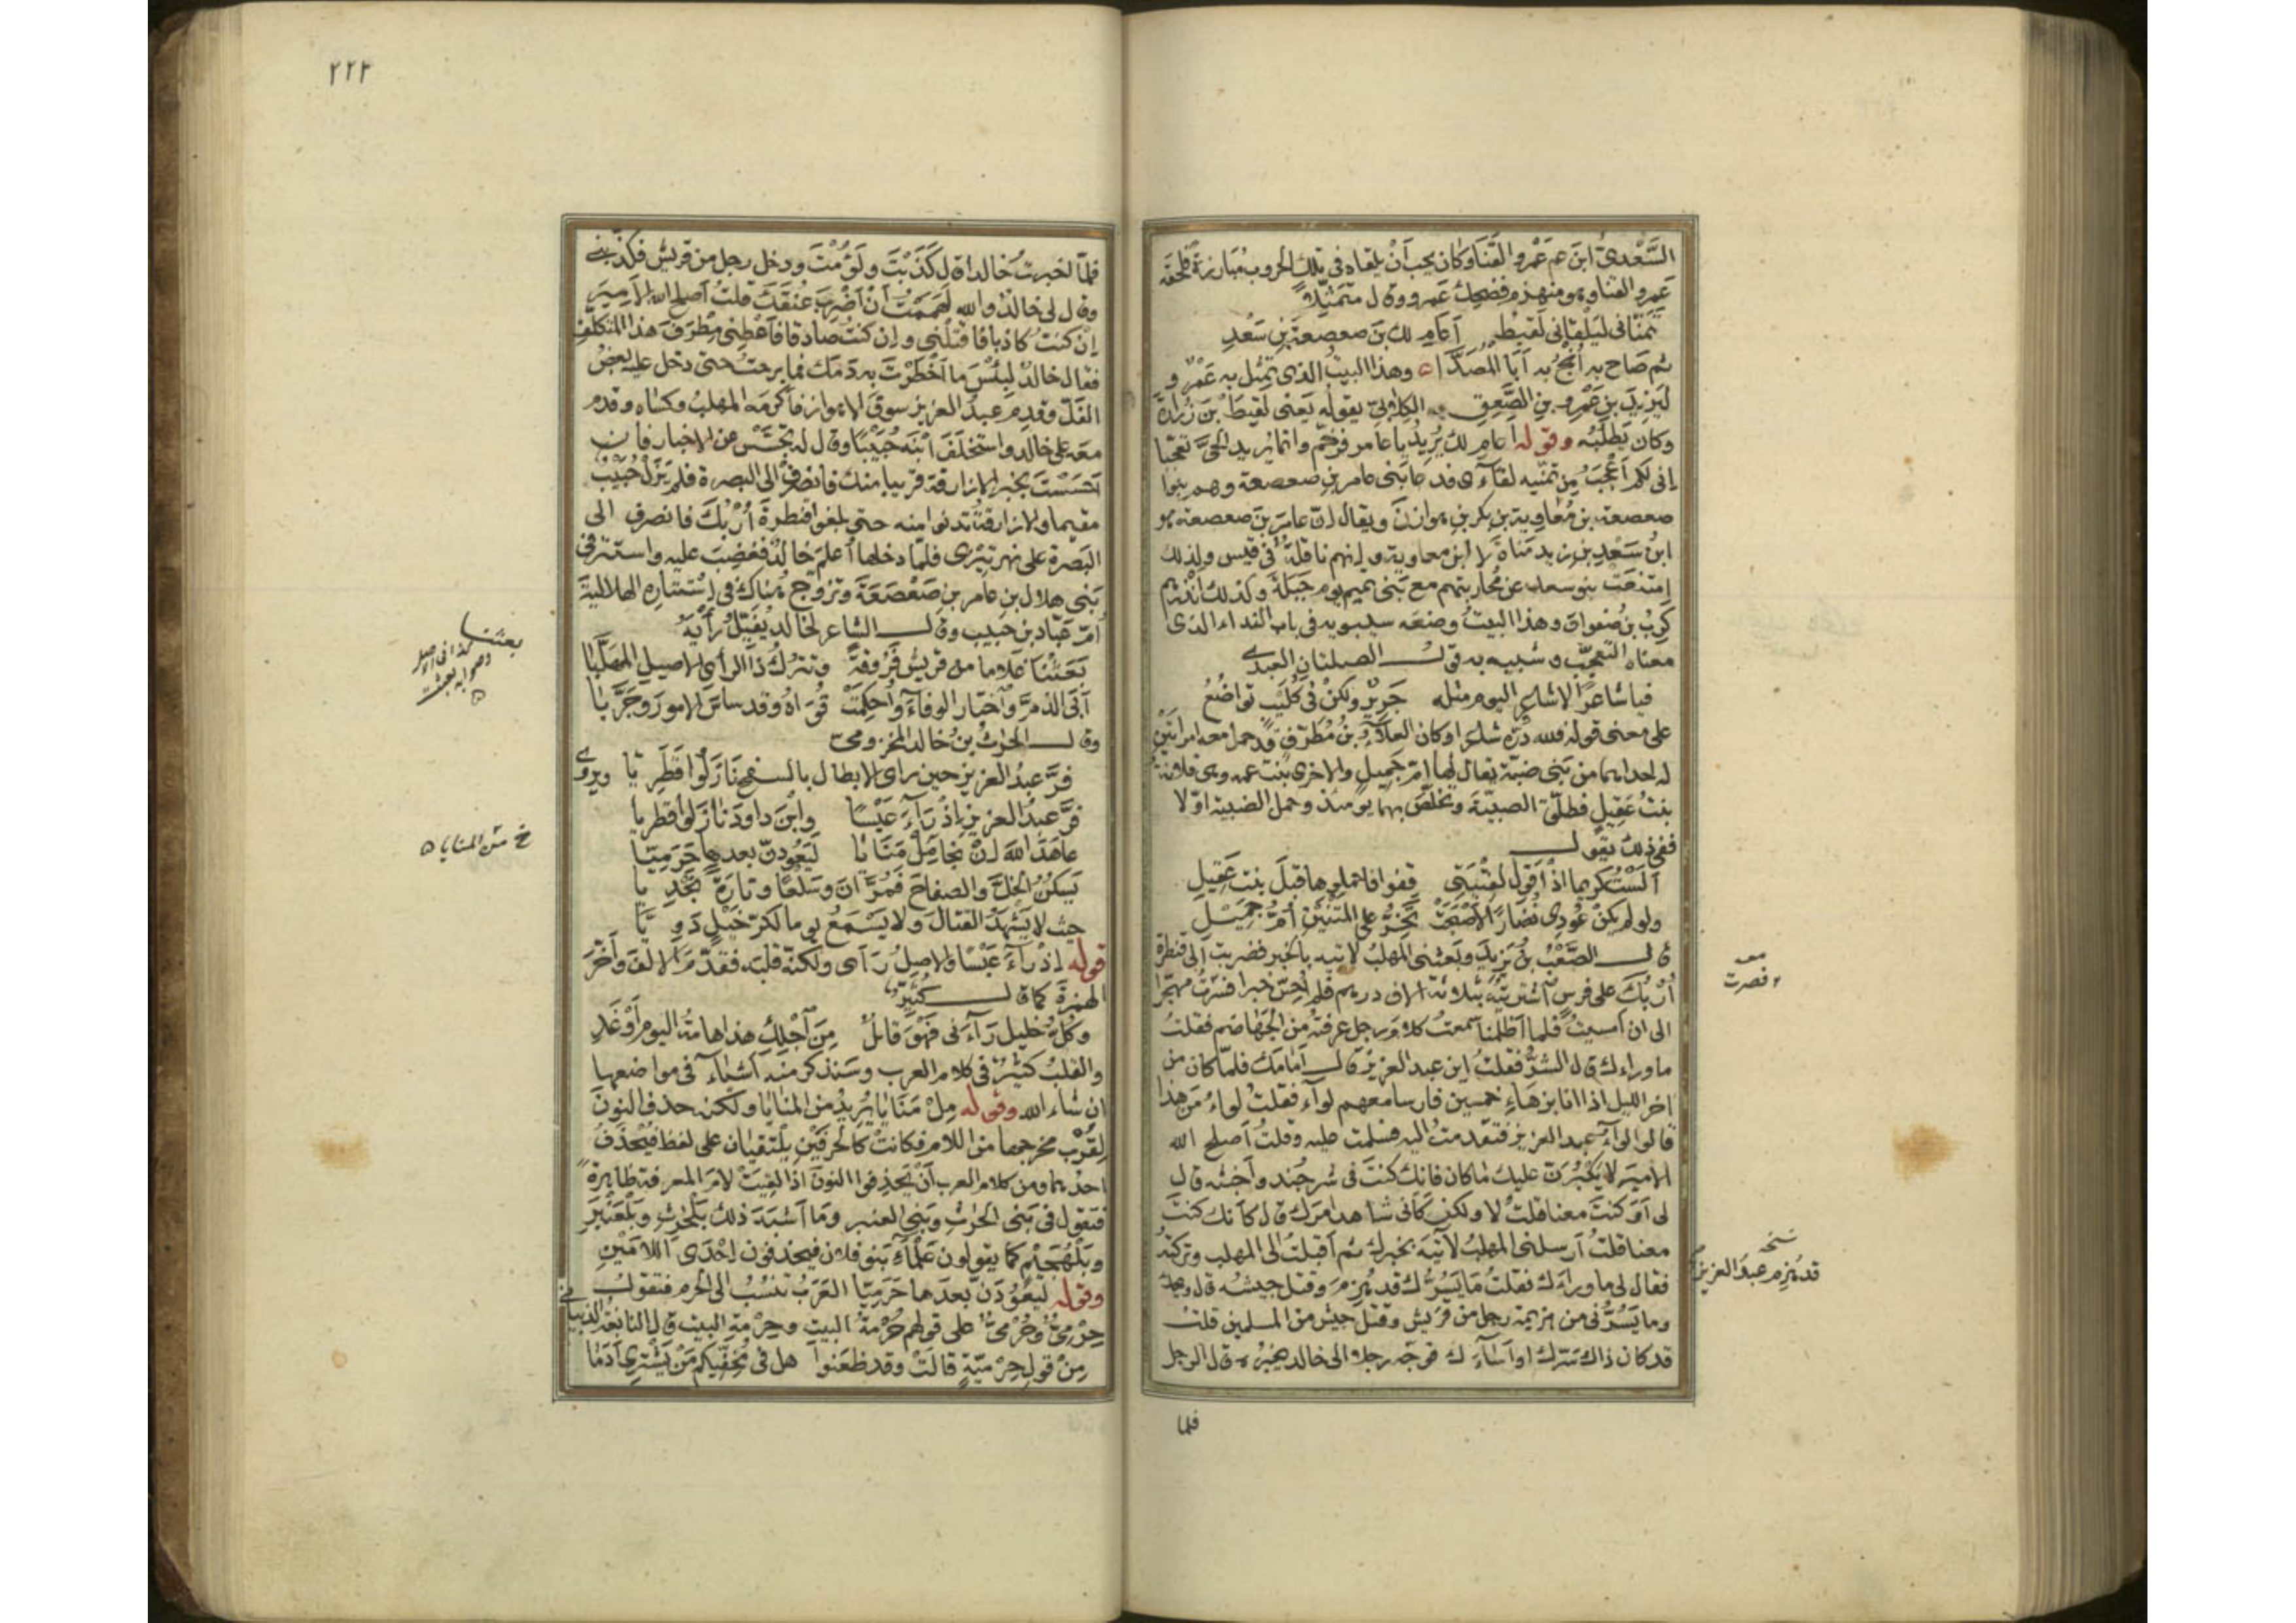 السَّعْدِىُّ ابنَ عم عَمْرو القَنَا وكان يحب أنْ يلقاه فى تلك الحروب مُبَارزةً فلحقه
عَمرو القنا وهو منهزم فضحك عَمرو وقال متمثّلاً
تمنّانى ليَلْقانى لَقيطٌ أعامِ لك بنَ صعصعةَ بنِ سَعْدِ
ثم صَاح به اُنجُ به أبَا المُصَدَّا ۵ وهذا البيتُ الذى تمثّل به عَمْرٌو
ليَزِيدَ بنِ عَمْرو بنِ الصَّعِق الكِلابىّ يقوله يَعنى لَقِيطَ بْنَ زُرارَةَ
وكان يَطلُبُه وقوله أعامِ لك يُرِيدُ ياعامر فرخّم وانما يريد الحَىَّ تعجّبا
إنى لكم أعْجَبُ مِن تمنّيه لقاءَى فدعا بَنى عامر بنِ صعصعة وهم بنوا
صعصعة بن مُعَاوية بن بكر بنِ هوازنَ ويقال إنّ عامرَ بنَ صعصعة هو
ابنُ سَعْدِ بن زيد مَناةَ لا ابن معاوية وإنهم ناقلةٌ فى قيس ولذلك
امتنعَتْ بنو سعد عن مُحاربتهم مع بَنى تميم يوم جَبَلَةَ وكذلك انذرهم
كَرِبُ بن صُفوان وهذا البيتُ وضعَه سيبويه فى باب النداء الذى
معناه التعجّب وشبيه به قول الصلتان العبدى
فيا شاعرًا لا شاعر اليوم مثله جَرِيرٌ ولكنْ فى كُلَيْبٍ تواضُعُ
على معنى قوله فلله درّه شاعرا وكان العَلاءُ بنُ مُطَرِّفٍ قد حمل معه امرأتَيْنِ
له احداهما من بَنى ضبّة يقال لها امّ جَميلٍ والاخرى بنت عمه وهى فلانة
بنتُ عَقيلٍ فطلّق الضبيّةَ وتخلّص بهما يومئذ وحمل الضبية اوّلا
ففى ذلك يقول
ألَسْتُ كريما اذْ أقول لفِتْيَتِى قفوا فاحملوها قبلَ بنت عَقيلِ
ولو لم يكنْ عُودِى نُضَارًا لأصْبَحَتْ تَجُرُّ على المَتْنَيْنِ أُمُّ جَمِيلِ
قال الصَّعْبُ بنُ يَزِيدَ وبَعثنى المهلبُ لآتيه بالخبر فضربت إلى قنطرة
أرْبُكَ على فرس اشتريتُه بثلاثة الاف درهم فلم أحِسّ خبرا فسرْتُ مهجّرا
الى ان أمسيتُ فلما أظلمنا سمعتُ كلامَ رجل عرفتُه من الجَهاضم فقلتُ
ما وراءك قال الشرُّ فقلتُ اين عبد العزيز قال أمَامَك فلمّا كان من
اخر الليل اذا انا بزهَاءِ خمسين فارسا معهم لواءٌ فقلتُ لواءُ مَن هذا
قالوا لواءُ عبد العزيز فتقدمتُ اليه فسلمت عليه وقلتُ أصلح الله
الأميرَ لا يَكْبُرَنّ عليك ما كان فانك كنتَ فى شر جُند وأخبثه قال
لى أوَكنتَ معنا قلتُ لا ولكن كأنى شاهد امرك قال كأنك كنتَ
معنا قلتُ أرسلنى المهلبُ لآتيَه بخبرك ثم اقبلتُ الى المهلب وتركتُه
فقال لى ما وراءك فقلتُ مَا يَسُرُّك قد هُزِمَ وقتل جيشه قال ويحك
وما يَسُرُّنى من هزيمة رجل من قريش وقتل جيش من المسلمين قلتُ
قد كان ذاك سَرّك او أسَاءَك فوجّه رجلا الى خالد يخبره قال الرجل
معه
فصرت
نسخة
قد هُزِم عبدُ العزيز
فلما
٢٢٢
فلمّا اخبرتُ خالدا قال كَذَبْتَ ولَؤُمْتَ ودخل رجل من قريش فكذّبنى
وقال لى خالدٌ والله لَهمَمْتُ أنْ أضْرِبَ عُنقَكَ قلتُ أصلح الله الأميرَ
إنْ كنتُ كاذبا فاقتلْنى وإن كنتُ صادقا فأعطِنى مِطْرَفَ هذا المتكلّف
فقال خالدٌ لبئسَ ما أخْطَرْتَ به دَمَك فما برحتُ حتى دخل عليه بعضُ
الفَلّ وقدِم عبدُ العزيز سوقَ الاهواز فأكرمه المهلبُ وكساه وقدم
معه على خالد واستخلَفَ ابْنَه حُبَيْبًا وقال له تجسَّسْ عن الاخبار فان
تجسَسْتَ بخبر الازارقة قريبا منك فانصرفْ الى البصرة فلم يَزَلْ حُبَيبٌ
مقيما والازارقةُ تدنوا منه حتى بلغوا قنطرةَ أرْبُكَ فانصرف الى
البَصرة على نهر تيرَى فلمّا دخلها أُعلِمَ خالدٌ فغضِبَ عليه واستتر فى
بَنى هلال بن عامر بن صَعْصَعَةَ وتزوج هُناك فى اِسْتِتاره الهلاليَّةَ
اُمّ عَبّاد بن حبيب وقال الشاعر لخالد يُفَيِّلُ رَأيَهُ
بَعَثْنَا غلاما من قريش فَرُوقَةً وتترُكُ ذا الرأى الاصيلِ المهَلَّبَا
أبَى الذمَّ واختار الوفاءَ واُحكِمتْ قُوَاهُ وقد ساسَ الامورَ وجَرَّبَا
وقال الحرثُ بنُ خالد المخزومىّ
فرَّ عبدُ العزيز حين راى الابطال بالسفح نَازَلُوا قَطَرِيّا ويروى
فرَّ عبدُ العزيز اِذْ رَاءَ عَيْسًا وابْنَ داودَ نازَلوا قطريا
عاهَدَ اللهَ اِنْ نجا مِلْ مَنَايَا لَيَعُودَنّ بعدها حَرَمِيّا
يَسكنُ الخَلَّ والصِفاحَ فمُرَّانَ وسَلْعًا وتارةً نَجْدِيّا
حيث لا يَشْهَدُ القتالَ ولا يَسْمَعُ يوما لكرّ خَيْلٍ دَوِيّا
قوله اِذْ رَاءَ عَبْسًا والاصلُ رَأى ولكنّه قلبَه فقدّمَ الالفَ وأخّرَ
الهمزةَ كما قال كثيّرٌ
وكلُّ خليلٍ رَاءَنى فَهْوَ قائلٌ مِن اَجْلِكَ هذا هامةُ اليومِ أوْ غَدِ
والقلبُ كثيرٌ فى كلام العرب وسَنذكر منه أشياءَ فى مواضعها
ان شاء الله وقوله مِلْ مَنَايَا يُرِيدُ من المنايا ولكنه حذف النونَ
لقُرْب مخرجها من اللام فكانتْ كالحرفَيْنِ يلتقيان على لفظ فيُحْذَفُ
احدُهما ومن كلام العرب أنْ يَحْذِفوا النونَ اذا لقيَتْ لامَ المعرفة ظاهرةً
فتقول فى بَنى الحرث وبَنى العنبر وما أشبَهَ ذلك بَلْحَرْثِ وبَلْعَنْبَرِ
وبَلْهُجَيْمِ كما يقولون عَلْمَاءِ بَنو فلان فيحذفون اِحْدَى اللامَيْنِ
وقوله لَيَعُوْدَنَّ بعدَها حَرَمِيّا العَرَبُ تنسُبُ الى الحرم فتقول
حِرْمِىٌّ وحُرْمِىٌّ على قولهم حُرْمةُ البيت وحِرْمةُ البيت قال النابغةُ الذبيانى
مِنْ قولِ حِرْميّةٍ قالَتْ وقد ظعَنوا هل فى مُخِفّيكم مَنْ يَشْتَرى أدَمَا
بعثنا
كذا فى الاصل
وصوابه بعثت
خ من المنايا ۵